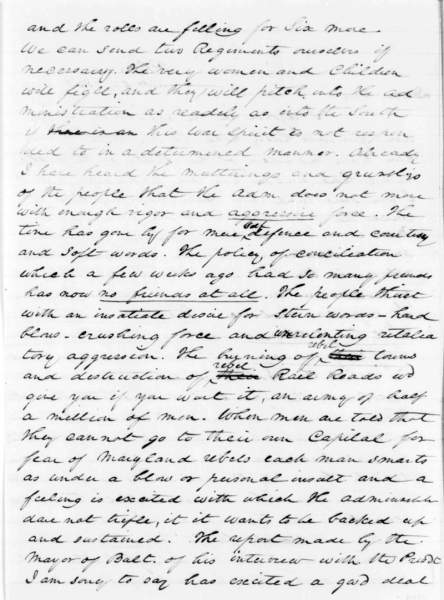 and the rolls are filling for Six more.
We can send two Regiments ourselves if
necessary. The very women and Children
will fight, and they will pitch into the ad
ministration as readily as into the South
if this War Spirit is not respon
ded to in a determined manner. Already
I have heard the mutterings and growls
of the people that the Adm. does not move
with enough rigor and aggressive force. The
time has gone by for mere defence and courtesy
and soft words. The policy of conciliation
which a few weeks ago had so many friends
has now no friends at all. The people thirst
with an insatiate desire for stern words - hard
blows - crushing force and unrelenting retalia
tory aggression. The burning of rebel towns
and destruction of rebel Rail Roads wd
give you if you want it, an army of half
a million of men. When men are told that
they cannot go to their own Capital for
fear of Maryland rebels each man smarts
as under a blow or personal insult and a
feeling is excited with which the administn
dare not trifle, if it wants to be backed up
and sustained. The report made by the
Mayor of Balt. of his interview with the Presdt
I am sorry to say has excited a good deal